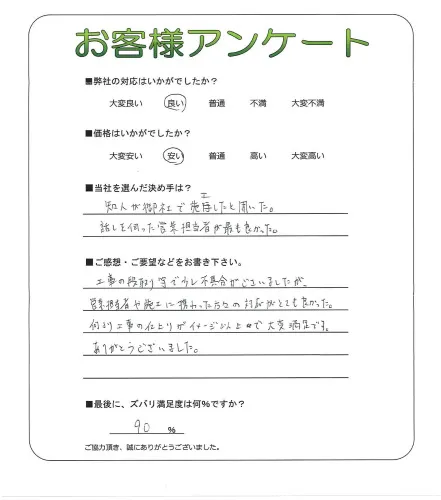 お客様アンケート
■弊社の対応はいかがでしたか?
大変良い 良い 普通 不満 大変不満
■価格はいかがでしたか?
大変安い 安い 普通 高い 大変高い
■当社を選んだ決め手は?
知人が御社で施工したと聞いた。
話しを伺った営業担当者が最も良かった。
■ご感想・ご要望などをお書き下さい。
工事の段取り等で少し不具合がございましたが、
営業担当者や施工に携わった方々の対応がとても良かった。
何より工事の仕上りがイメージ以上で大変満足です。
ありがとうございました。
■最後に、ズバリ満足度は何%ですか?
90 %
ご協力頂き、誠にありがとうございました。